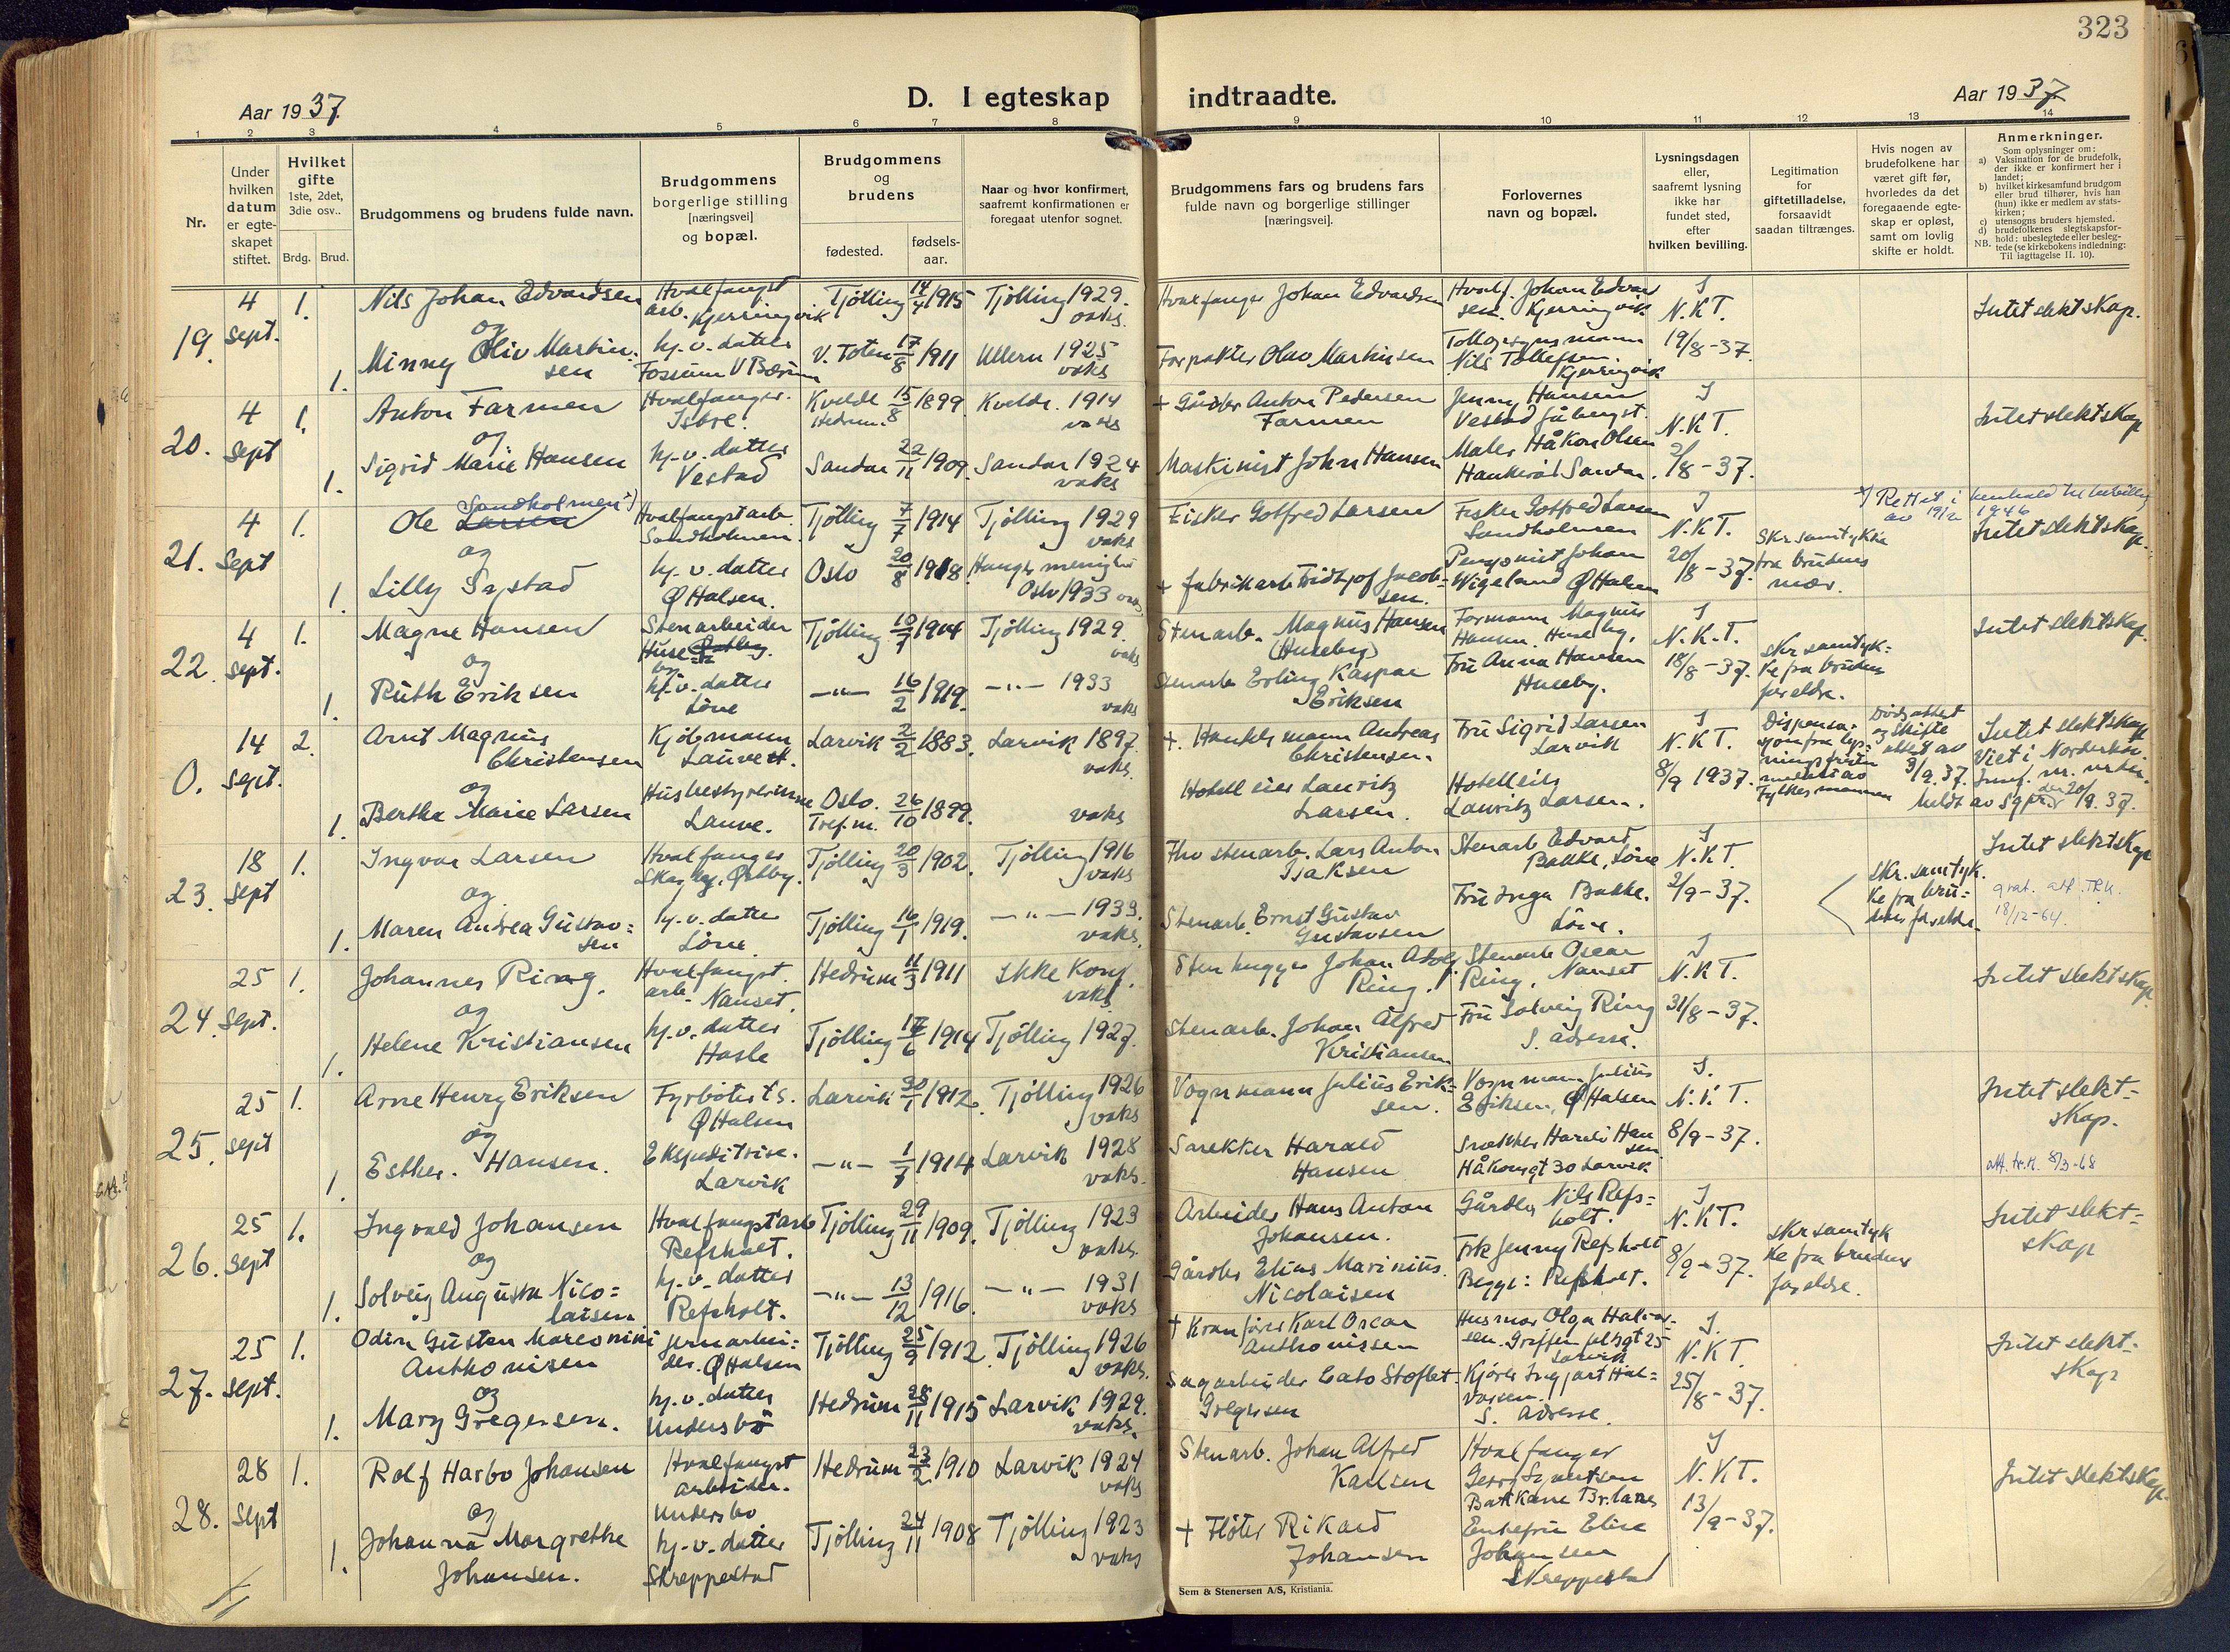 323
Aar 1937.
D. I egteskap indtraadte.
Aar 1937.
1 2 3 4 5 6 7 8 9 10 11 12 13 14
Nr.
Under
hvilken
datum
er egte-
skapet
stiftet.
Hvilket
gifte
1ste, 2det,
3die osv..
Brdg. Brud.
Brudgommens og brudens fulde navn.
Brudgommens
borgerlige stilling
[næringsvei]
og bopæl.
Brudgommens
og
brudens
fødested.
fødsels-
aar.
Naar og hvor konfirmert,
saafremt konfirmationen er
foregaat utenfor sognet.
Brudgommens fars og brudens fars
fulde navn og borgerlige stillinger
[næringsvei].
Forlovernes
navn og bopæl.
Lysningsdagen
eller,
saafremt lysning
ikke har
fundet sted,
efter
hvilken bevilling.
Legitimation
for
giftetilladelse,
forsaavidt
saadan tiltrænges.
Hvis nogen av
brudefolkene har
været gift før,
hvorledes da det
foregaaende egte-
skap er opløst,
samt om lovlig
skifte er holdt.
Anmerkninger.
Som oplysninger om:
a) Vaksination for de brudefolk,
der ikke er konfirmert her i
landet;
b) hvilket kirkesamfund brudgom
eller brud tilhører, hvis han
(hun) ikke er medlem av stats-
kirken;
c) utensogns bruders hjemsted.
d) brudefolkenes slegtskapsfor-
hold: ubeslegtede eller besleg-
NB. tede (se kirkebokens indledning:
Til iagttagelse II. 10).
19. 4 Sept. 1.
Nils Johan Edvardsen
Hvalfangst
arb. Kjerringvik
Tjölling 14/4 1915
Tjölling 1929.
vaks.
Hvalfanger Johan Edvardsen
Hvalf. Johan Edvard
sen. Kjerringvik
N.K.T.
19/8-37.
Intet slektskap.
og
1. Minny Oliv Martin:
sen
hj. v. datter
Fossum V Bærum
V. Toten 17/8 1911
Ullern 1925
vaks
Forpakter Olav Martinsen
Nils Tollefsen.
Kjerringvik
20. 4 Sept 1.
Anton Farmen
Hvalfanger.
Istre.
Kvelde
Hedrum. 15/8 1899
Kvelde. 1914
vaks
+ Gårdbr Anton Pedersen
Farmen
Jenny Hansen
Vestad
N.K.T.
2/8-37.
Intet slektskap
og
1. Sigrid Marie Hansen
hj. v. datter
Vestad
Sandar 22/11 1909.
Sandar 1924
vaks
Maskinist John Hansen
Maler Håkon Olsen
Sandar.
21. 4 Sept 1.
Sandholmen x)
Ole Larsen
Hvalfangstarb.
Sandholmen.
Tjölling 7/7 1914
Tjölling 1929
vaks
Fisker Gotfred Larsen
Fisker Gotfred Larsen
Sandholmen
N.K.T.
20/8-37.
Skr samtykke
fra brudens
mor.
x) Rettet i henhold til bevilling
av 19/2 1946
Intet slektskap.
og
1. Lilly Systad
hj. v. datter
Ø Halsen.
Oslo 20/8 1918.
Hauges menighet
Oslo 1933 vaks
+ fabrikarb Fridtjof Jacob-
sen.
Johan
Wigeland Ø Halsen
22. 4 Sept. 1.
Magne Hansen
Stenarbeider
Huseby.
Tjölling 10/7 1914
Tjölling 1929.
vaks
Stenarb. Magnus Hansen
(Huseby)
Formann Magnus
Hansen. Huseby,
N.K.T.
18/8-37.
Skr samtyk-
ke fra brudens
foreldre.
Intet slektskap.
og
1. Ruth Eriksen
hj. v. datter
Löve
—"— 16/2 1919.
—"— 1933
vaks
Stenarb Erling Kaspar
Eriksen
Fru Anna Hansen
Huseby.
0. 14 Sept. 2.
Arnt Magnus
Christensen
Kjöbmann
Lauve.
Larvik 2/2 1883.
Larvik 1897.
vaks.
+. Handelsmann Andreas
Christensen.
Fru Sigrid Larsen
Larvik
N.K.T.
8/9 1937.
Dispensa-
sjon fra lys-
ningsfristen
meddelt av
Fylkesmannen
Dödsattest
og Skifte
attest av
3/9.37.
Intet slektskap
Viet i Norderhov.
Innf. nr. uten.
Meldt av Spr. den 20/9.37.
og
1. Berthe Marie Larsen
Husbestyrerinne
Lauve.
Oslo.
Tref.m. 26/10 1899.
vaks
Hotelleier Lauritz
Larsen.
Hotelleier
Lauritz Larsen.
23. 18 Sept 1.
Ingvar Larsen
Hvalfanger
Østby.
Tjölling 20/3 1902.
Tjölling 1916
vaks
Fhv stenarb. Lars Anton
Isaksen
Stenarb Edvard
Bakke, Löve
N.K.T.
2/9-37.
Skr. samtyk.
ke fra bru-
dens foreldre.
Intet slektskap
grat. att. TRK.
18/12-64.
og
1. Maren Andrea Gustav=
sen
hj. v. datter
Löve
Tjölling 16/1 1919.
—"— 1933.
vaks.
Stenarb. Ernst Gustav
Gustavsen
Fru Inga Bakke.
Löve.
24. 25 Sept. 1.
Johannes Ring.
Hvalfangst.
arb. Nanset.
Hedrum 11/3 1911
Ikke konf.
vaks
Stenhugger Johan Adolf
Ring.
Stenarb Oscar
Ring. Nanset
N.K.T.
31/8-37.
Intet slektskap.
og
1. Helene Kristiansen
hj. v. datter
Hasle
Tjölling 17/6 1914
Tjölling 1927.
Stenarb. Johan Alfred
Kristiansen
Fru Solveig Ring
S. adresse.
25. 25 Sept 1.
Arne Henry Eriksen
Fyrböter ts.
Ø Halsen
Larvik 30/1 1912.
Tjölling 1926
vaks
Vognmann Julius Erik=
sen.
Vognmann Julius
Eriksen, Ø Halsen
N.K.T.
8/9-37.
Intet slekt-
skap.
att. tr.k. 8/3-68
og
1. Esther. Hansen.
Ekspeditrise.
Larvik
—"— 1/7 1914
Larvik 1928
vaks.
Snekker Harald
Hansen
Snekker Harald Han
sen
Håkonsgt 30 Larvik
26. 25 Sept 1.
Ingvald Johansen
Hvalfangstarb
Refsholt.
Tjölling 29/11 1909.
Tjölling 1923
vaks.
Arbeider Hans Anton
Johansen.
Gårdbr Nils Refs=
holt.
N.K.T.
8/9-37.
Skr samtyk
ke fra brudens
foreldre.
Intet slekt=
skap
og
1. Solveig Augusta Nico=
laisen
hj. v. datter
Refsholt.
—"— 13/12 1916.
—"— 1931
vaks
Gårdbr Elias Marinius.
Nicolaisen
Frk Jenny Refsholt
Begge: Refsholt.
27. 25 Sept. 1.
Odin Gusten Marconini
Anthonisen
Jernarbei=
der. Ø Halsen
Tjölling 25/9 1912.
Tjölling 1926
vaks.
+ Kranförer Karl Oscar
Anthonissen
Husmor Olga Halvor-
sen. Griffenfeldsgt 25
Larvik
N.K.T.
25/8-37.
Intet slekt-
skap
og
1. Mary Gregersen.
hj. v. datter
Undersbö
Hedrum 28/11 1915
Larvik 1929.
vaks.
Sagarbeider Cato Stoflet
Gregersen
Kjörer Ingvart Hal=
vorsen.
S. Adresse.
28. 28 Sept 1.
Rolf Harbo Johansen
Hvalfangst
arbeider.
Undersbo
Hedrum 23/2 1910
Larvik 1924
vaks
Stenarb. Johan Alfred
Karlsen
Hvalfanger
N.K.T.
13/9-37.
Intet slektskap.
og
1. Johanna Margrethe
Johansen.
hj. v. datter
Skreppestad
Tjölling 24/11 1908
Tjölling 1923
vaks
+ Flöter Rikard
Johansen
Enkefru Elise
Johansen
Skreppestad
Sem & Stenersen A/S, Kristiania.